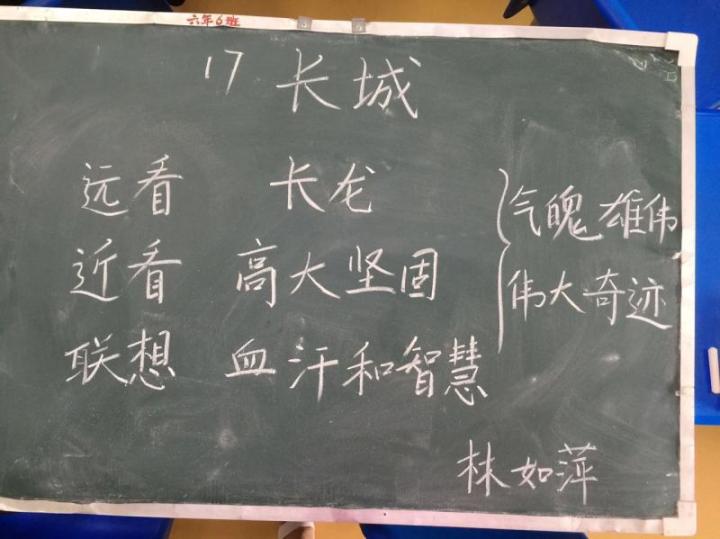 六年6班
17 长城
远看 长龙 气魄雄伟
近看 高大坚固 伟大奇迹
联想 血汗和智慧
林如萍